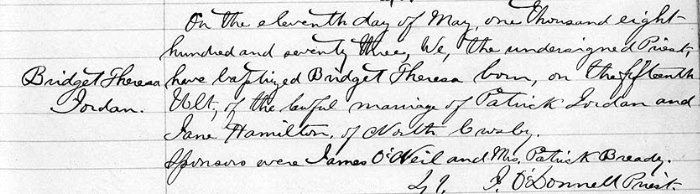 On the eleventh day of May, one thousand eight-
hundred and seventy three, We, the undersigned Priest,
Bridget Theresa
Jordan.
have baptized Bridget Theresa born, on the fifteenth
Ult, of the lawful marriage of Patrick Jordan and
Jane Hamilton, of North Crosby.
Sponsors were James O'Neil and Mrs. Patrick Bready.
J. O'Donnell Priest